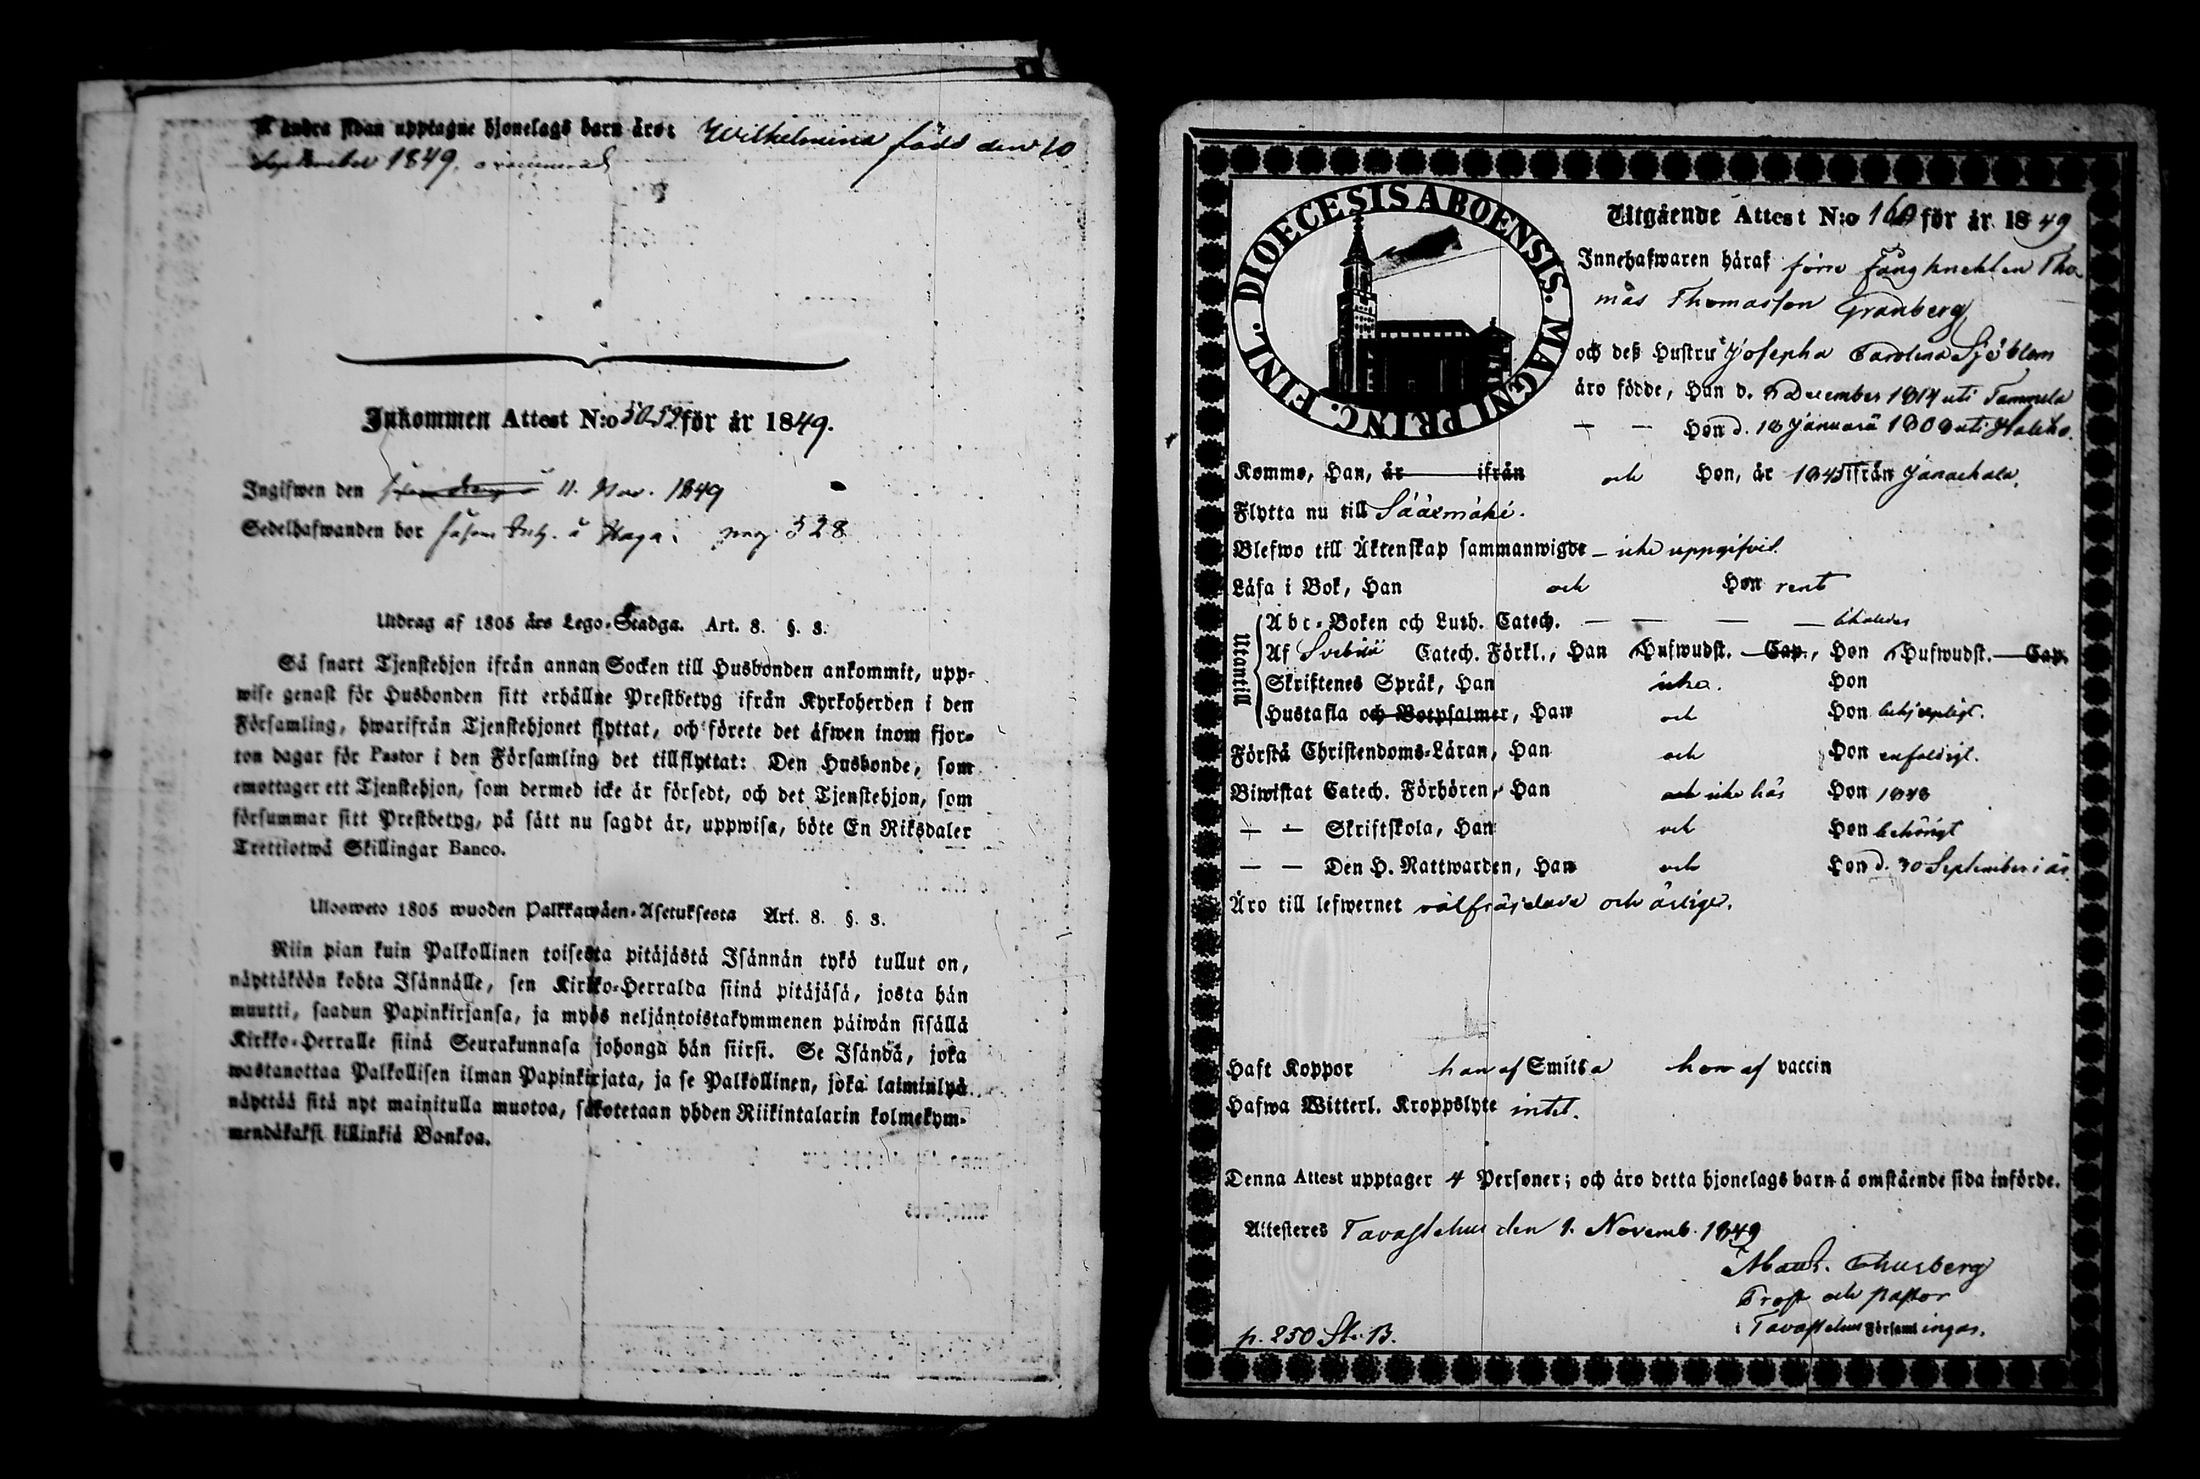 å andra sidan upptagne hjonelags barn äro: Wilhelmina född den 10
September 1849.
Inkommen Attest N:o för år 1849.
Ingifwen den 11. Nov. 1849
Sedelhafwanden bor å Haga. pag 328
Utdrag af 1805 års Lego-Stadga. Art. 8. §. 3.
Så snart Tjenstehjon ifrån annan Socken till Husbonden ankommit, upp-
wise genast för Husbonden sitt erhållne Prestbetyg ifrån Kyrkoherden i den
Församling, hwarifrån Tjenstehjonet flyttat, och förete det äfwen inom fjor-
ton dagar för Pastor i den Församling det tillflyttat: Den Husbonde, som
emottager ett Tjenstehjon, som dermed icke är försedt, och det Tjenstehjon, som
försummar sitt Prestbetyg, på sätt nu sagdt är, uppwisa, böte En Riksdaler
Trettiotwå Skillingar Banco.
Ulosweto 1805 wuoden Palkkawäen-Asetuksesta Art. 8. §. 3.
Niin pian kuin Palkollinen toisesta pitäjästä Isännän tykö tullut on,
näyttäköön kohta Isännälle, sen Kirkko-Herralda siinä pitäjäsä, josta hän
muutti, saadun Papinkirjansa, ja myös neljäntoistakymmenen päiwän sisällä
Kirkko-Herralle siinä Seurakunnasa johonga hän siirsi. Se Isändä, joka
wastanottaa Palkollisen ilman Papinkirjata, ja se Palkollinen, joka laiminlyö
näyttää sitä nyt mainitulla muotoa, sakotetaan yhden Riikintalarin kolmekym-
mendäkaksi killinkiä Bankoa.
DIOECESIS ABOENSIS. MAGNI PRINC. FINL.
Utgående Attest N:o 160 för år 1849
Innehafwaren häraf förre Fångknekten Tho-
mas Thomasson Granberg
och deß Hustru Josepha Carolina Sjöblom
äro födde, Han d. December 1814 uti Tammela
— — Hon d. 18 Januari uti
Komme, Han, år ifrån och Hon, år 1845 ifrån Janackala.
Flytta nu till Sääxmäki.
Blefwo till Äktenskap sammanwigde — icke uppgifvit.
Läsa i Bok, Han och Hon rent
Utantill
Abc-Boken och Luth. Catech. — — — —
Af Svebilii Catech. Förkl., Han Hufwudst. Cap., Hon Hufwudst. Cap.
Skriftenes Språk, Han icke. Hon
Hustafla och Botpsalmer, Han och Hon behjelpligt.
Förstå Christendoms-Läran, Han och Hon enfaldigt.
Biwistat Catech. Förhören, Han och icke här Hon 1848
— — Skriftskola, Han och Hon behörigt
— — Den H. Nattwarden, Han och Hon d. 30 September i år.
Äro till lefwernet välfräjdade och ärlige.
Haft Koppor han af Smitta hon af vaccin
Hafwa Witterl. Kroppslyte intet.
Denna Attest upptager 4 Personer; och äro detta hjonelags barn å omstående sida införde.
Attesteres Tavastehus den 1. Novemb. 1849
Prost och pastor
i Tavastehus Församlingar.
p. 250 St. B.